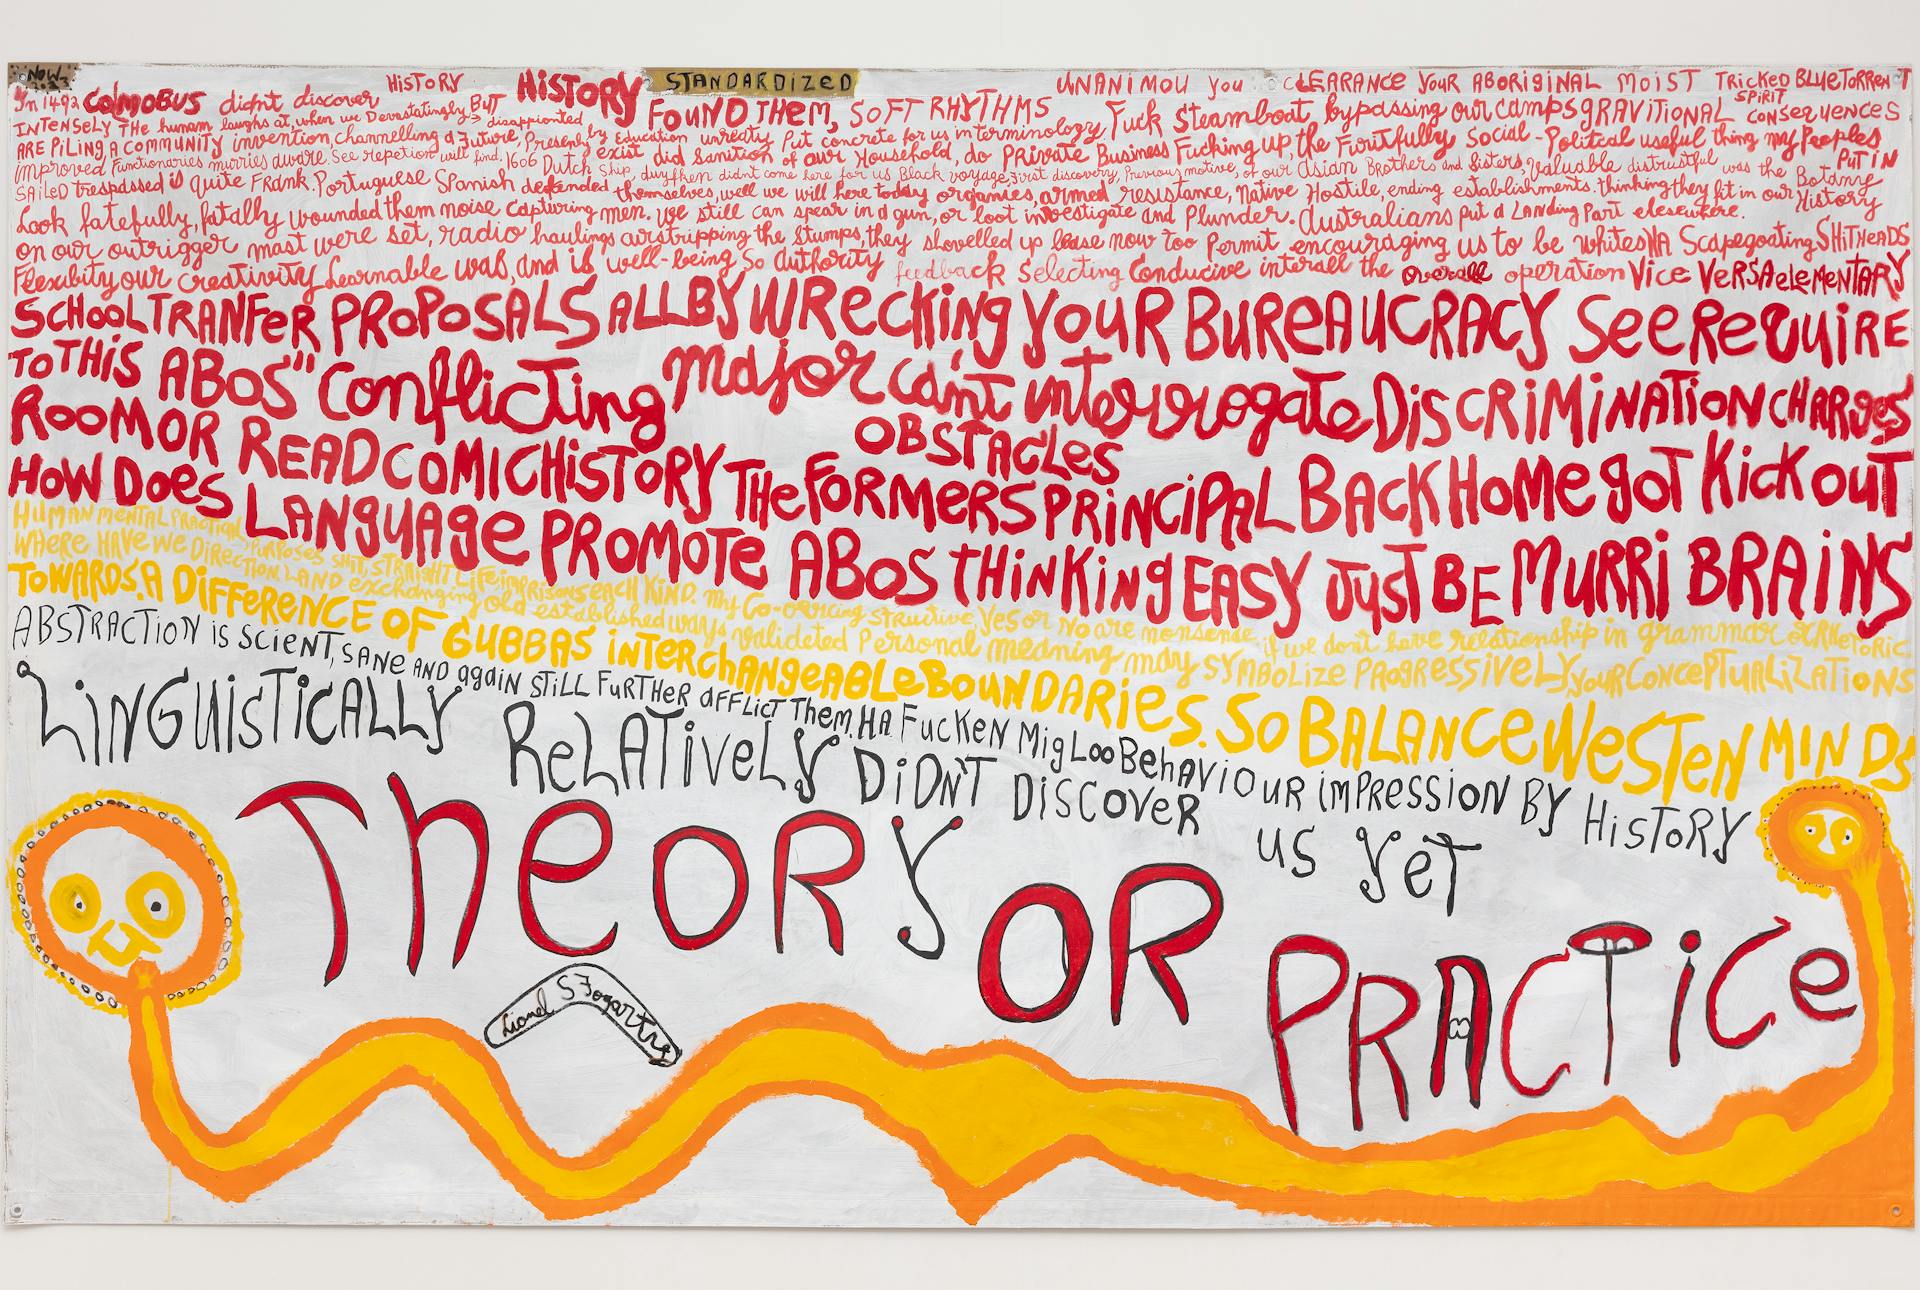 NOW
HiSTORY HISTORY STANDARDIZED UNANIMOU you CLEARANCE your ABORIGINAL MOIST TRicKED BLUETORRENT
In 1492 COlMOBUS didnt discover
FOUND THEM, SOFT RHYTHMS Fuck Steamboat, bypassing our camps GRAVITIONAL SPiRiT CONSEQUENCES
INTENSELY THe humam laughs at, when we Devastatingly, BUT disappionted
ARE PiLiNG A COMMUNITY invention, channelling a Future, Present, by Education unreality Put concrete for us in terminology
Fucking up, the Fruitfully Social-Political useful thing my Peoples
improved Functionaries murries aware. See repetion will find, 1606 Dutch Ship, duyfken didnt come here for us Black voyage, First discovery, Previous motive, of our Asian Brothers and Sisters, Valuable distrustful was the Botany
exist did sanition of our Household, do PRivate Business
PUT iN
SAiLeD trespassed is quite FRank. Portuguese Spanish defended themselves, well we will here today organies, armed resistance, Native Hostile, ending establishments. thinking they fit in our History
Look fatefully, fatally wounded them noise capturing men. We still can spear in a gun, or loot investigate and Plunder. Australians put a Landing Part elesewhere.
on our outrigger mast were set, radio haulings airstripping the stumps, they shovelled up lease now too Permit encouraging us to be whites HA Scapegoating SHiTHeADS
Flexibity our creativity Learnable was, and is well-being So Authority feedback selecting Conducive interall the overall operation Vice VeRSA eLeMENTARY
SCHooL TRANFeR PROPOSALS ALL BY WRecKing YOUR BUReAUCRACY See ReQUiRE
TO THiS ABOS" Conflicting major can't interrogate DiSCRiMiNATiON CHARgeS
OBSTACLes
ROOM OR READ COMIC HiSTORY THe FORMERS PRiNCiPAL BACK HOMe goT Kick ouT
HOW DOeS LANguAge PROMOTe ABOS tHiNKiNg EASY JUST BE MURRi BRAiNS
HUMAN MENTAL PRACTiON, PURPOSES SHiT, STRAIGHT LiFe iMPRiSONS eACH KiND. My Co-oercing structive yes or No are nonsense, if we don't have relationship in grammar or RHeToRic
WHERE HAVE We DiRecTiON LAND exchanging old established ways valideted Personal meaning may SYMBOLIZE PROgReSSiVeLY your CONCePTUALiZATiONS
TOWARDS. A DiFFeReNCE OF GUBBAS iNTeRCHANgeABLe BOUNDARieS. SO BALANce WeSTeN MiNDS
ABSTRACTiON iS SCieNT, SANe AND again STiLL FuRTHeR aFFLicT THem. HA FucKeN MigLoo BeHAViOUR iMPReSSiON BY HiSToRY
LiNGUiSTiCALLY ReLATiVeLY DiDN'T DiSCOVeR us YeT
THeoRY OR PRACTiCe
Lionel S Fogarty